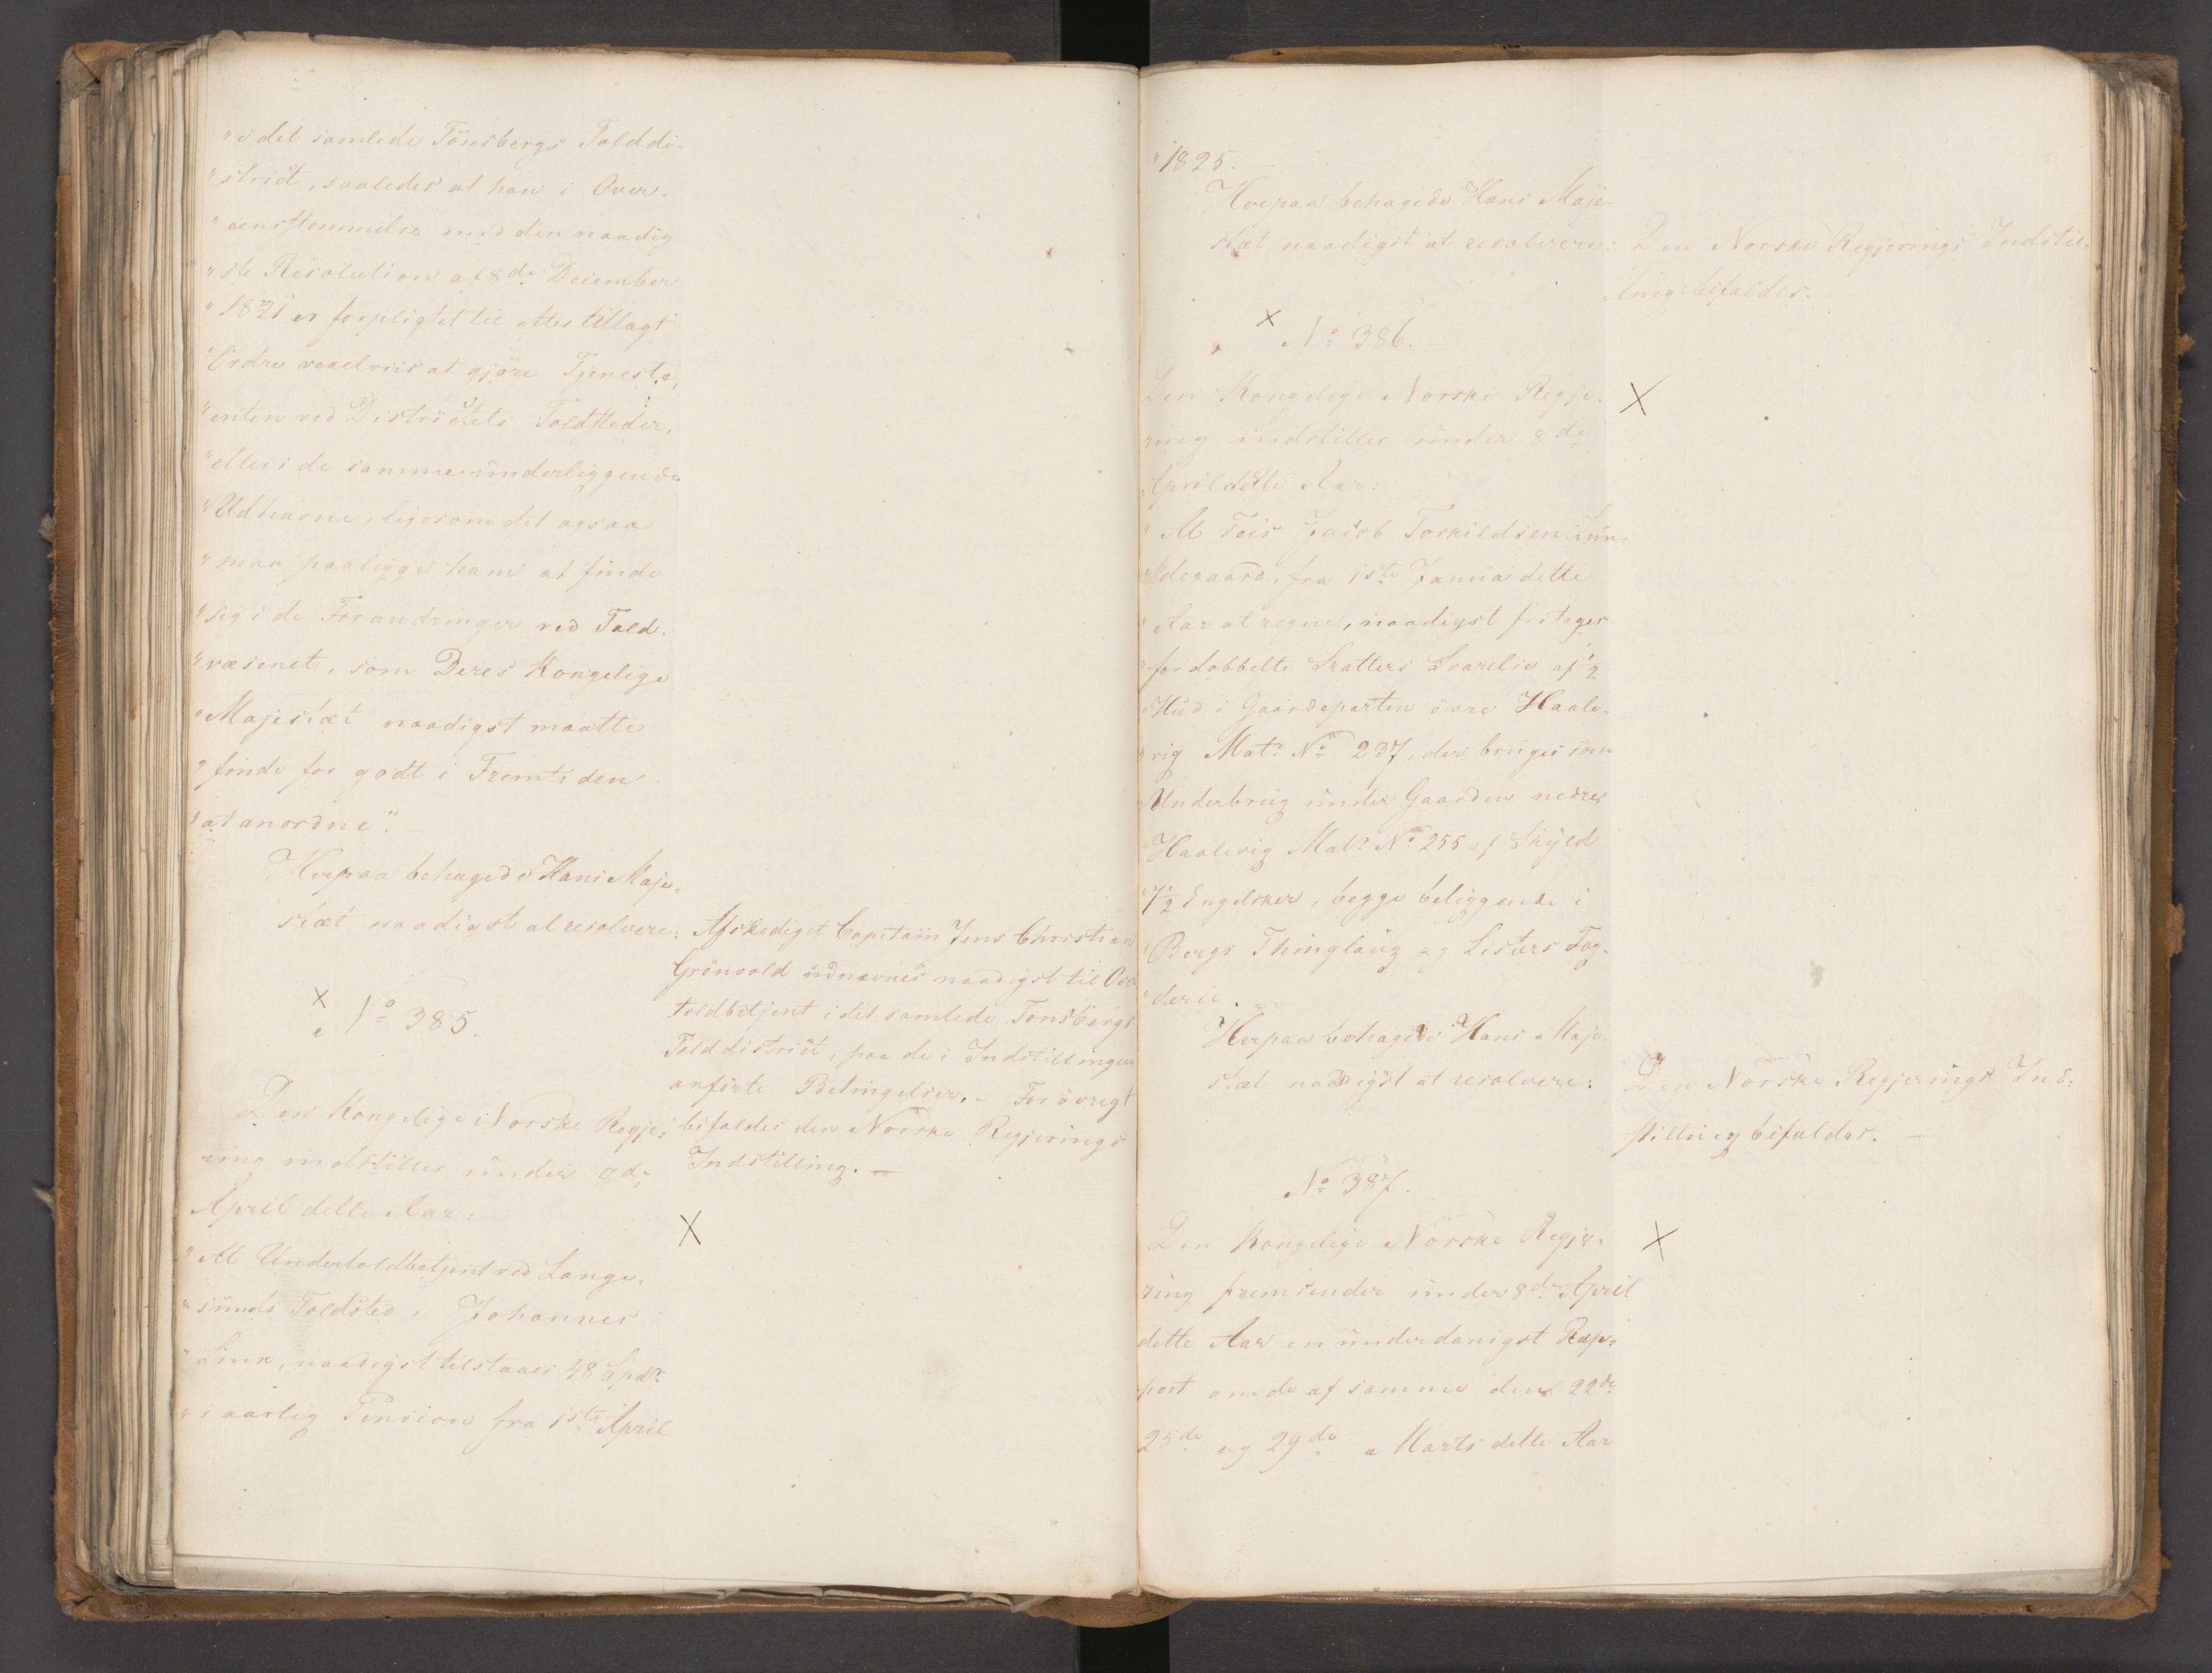 "i det samlede Tönsbergs Told di-
"strict, saaledes at han i Over-
"eensstemmelse med den naadig
"ste Resolution af 8de December
"1821 er forpligtet til efter tillagt
"Ordre vexelviis at gjöre Tjeneste,
"enten ved Districtets Toldsteder,
"eller i de samme underliggende
"Udhavne, ligesom det ogsaa
"maa paaligge ham at finde
"sig i de Forandringer ved Told-
"væsenet, som Deres Kongelige
"Majestæt naadigst maatte
"finde for godt i Fremtiden
"at anordne".
Herpaa behagede Hans Maje-
stæt naadigst at resolvere:
Afskediget Capitain Jens Christian
Grönvold udnævnes naadigst til Over
toldbetjent i det samlede Tönsbergs
Tolddistrict, paa de i Indstillingen
anförte Betingelser. - For övrigt
bifaldes den Norske Regjerings
Indstilling. -
No 385.
Den Kongelige Norske Regje-
ring indstiller under 8de
April dette Aar:
"At Undertoldbetjent ved Lange-
"sunds Toldsted, Johannes
"Linn, naadigst tilstaaes 48 Spdr.
"i aarlig Pension fra 1ste April
"1825.
Herpaa behagede Hans Maje-
stæt naadigst at resolvere:
Den Norske Regjerings Indstil-
ling bifaldes.
No 386.
Den Kongelige Norske Regje-
ring indstiller under 8de
April dette Aar:
"At Teis Jacob Torkildsen Lun-
"degaard, fra 1ste Janua dette
"Aar at regne, naadigst fritages
"for dobbelte Skatters Svarelse af 1/2
"Hud i Gaardeparten övre Haale-
"vig Matr. No 237, der bruges som
"Underbrug under Gaarden nedre
"Haalevig Matr. No 255 af Skyld
"7 1/2 Engelsker, begge beliggende i
"Bergs Thinglaug og Listers Fog-
"derie.
Herpaa behagede Hans Maje
stæt naadigst at resolvere:
Den Norske Regjerings Ind-
stilling bifaldes. -
No 387.
Den Kongelige Norske Regje-
ring fremsender under 8de April
dette Aar en underdanigst Rap-
port om de af samme den 22de
25de og 29de Marts dette Aar